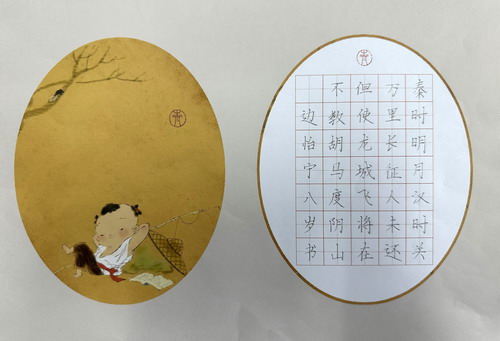 秦时明月汉时关
万里长征人未还
但使龙城飞将在
不教胡马度阴山
边怡宁八岁书